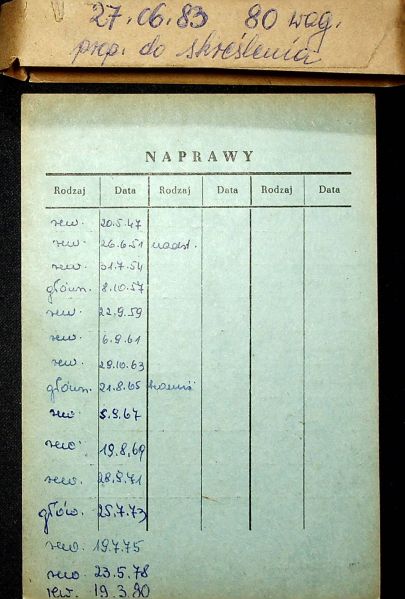 27.06.83 80 wag.
prop. do skreślenia
NAPRAWY
Rodzaj Data Rodzaj Data Rodzaj Data
rew. 20.5.47
rew. 26.6.51
rew. 31.7.54
główn. 8.10.57
rew. 22.9.59
rew. 6.9.61
rew. 29.10.63
główn. 21.8.65
rew. 5.9.67
rew. 19.8.69
rew. 28.9.71
głów. 25.7.73
rew. 19.7.75
rew. 23.5.78
rew. 19.3.80